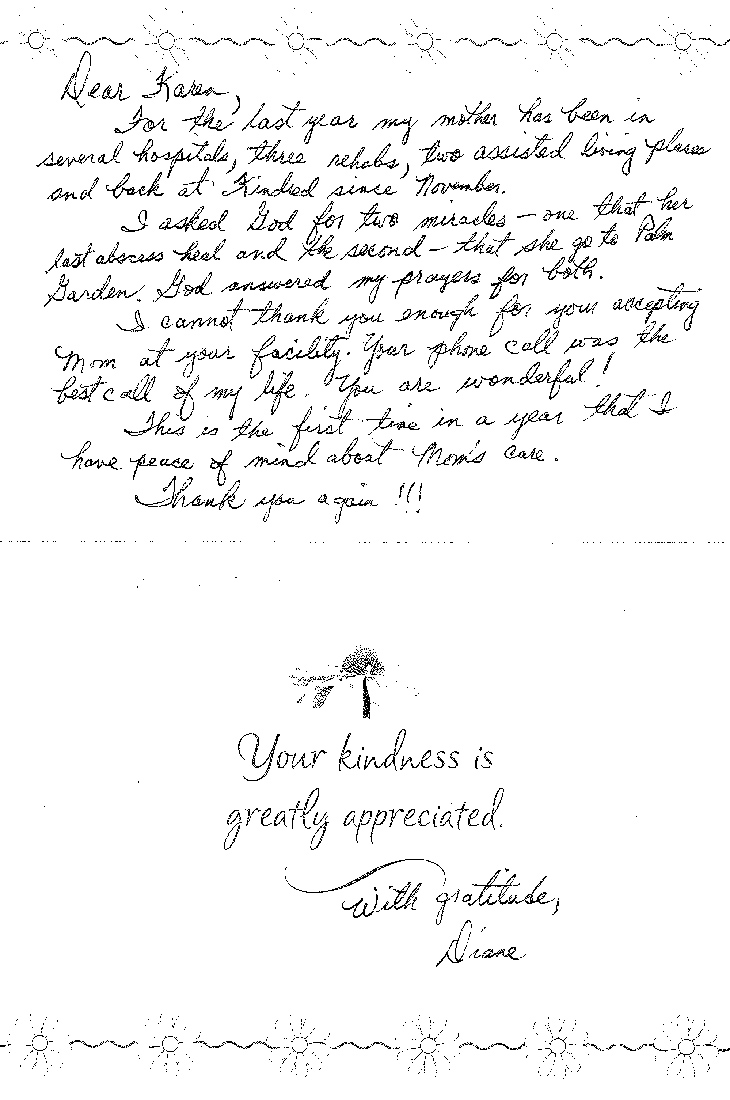 Dear Karen,
For the last year my mother has been in
several hospitals, three rehabs, two assisted living places
and back at Kindred since November.
I asked God for two miracles - one that her
last abscess heal and the second - that she go to Palm
Garden. God answered my prayers for both.
I cannot thank you enough for your accepting
Mom at your facility. Your phone call was the
best call of my life. You are wonderful!
This is the first time in a year that I
have peace of mind about Mom's care.
Thank you again !!!
Your kindness is
greatly appreciated.
With gratitude,
Diane